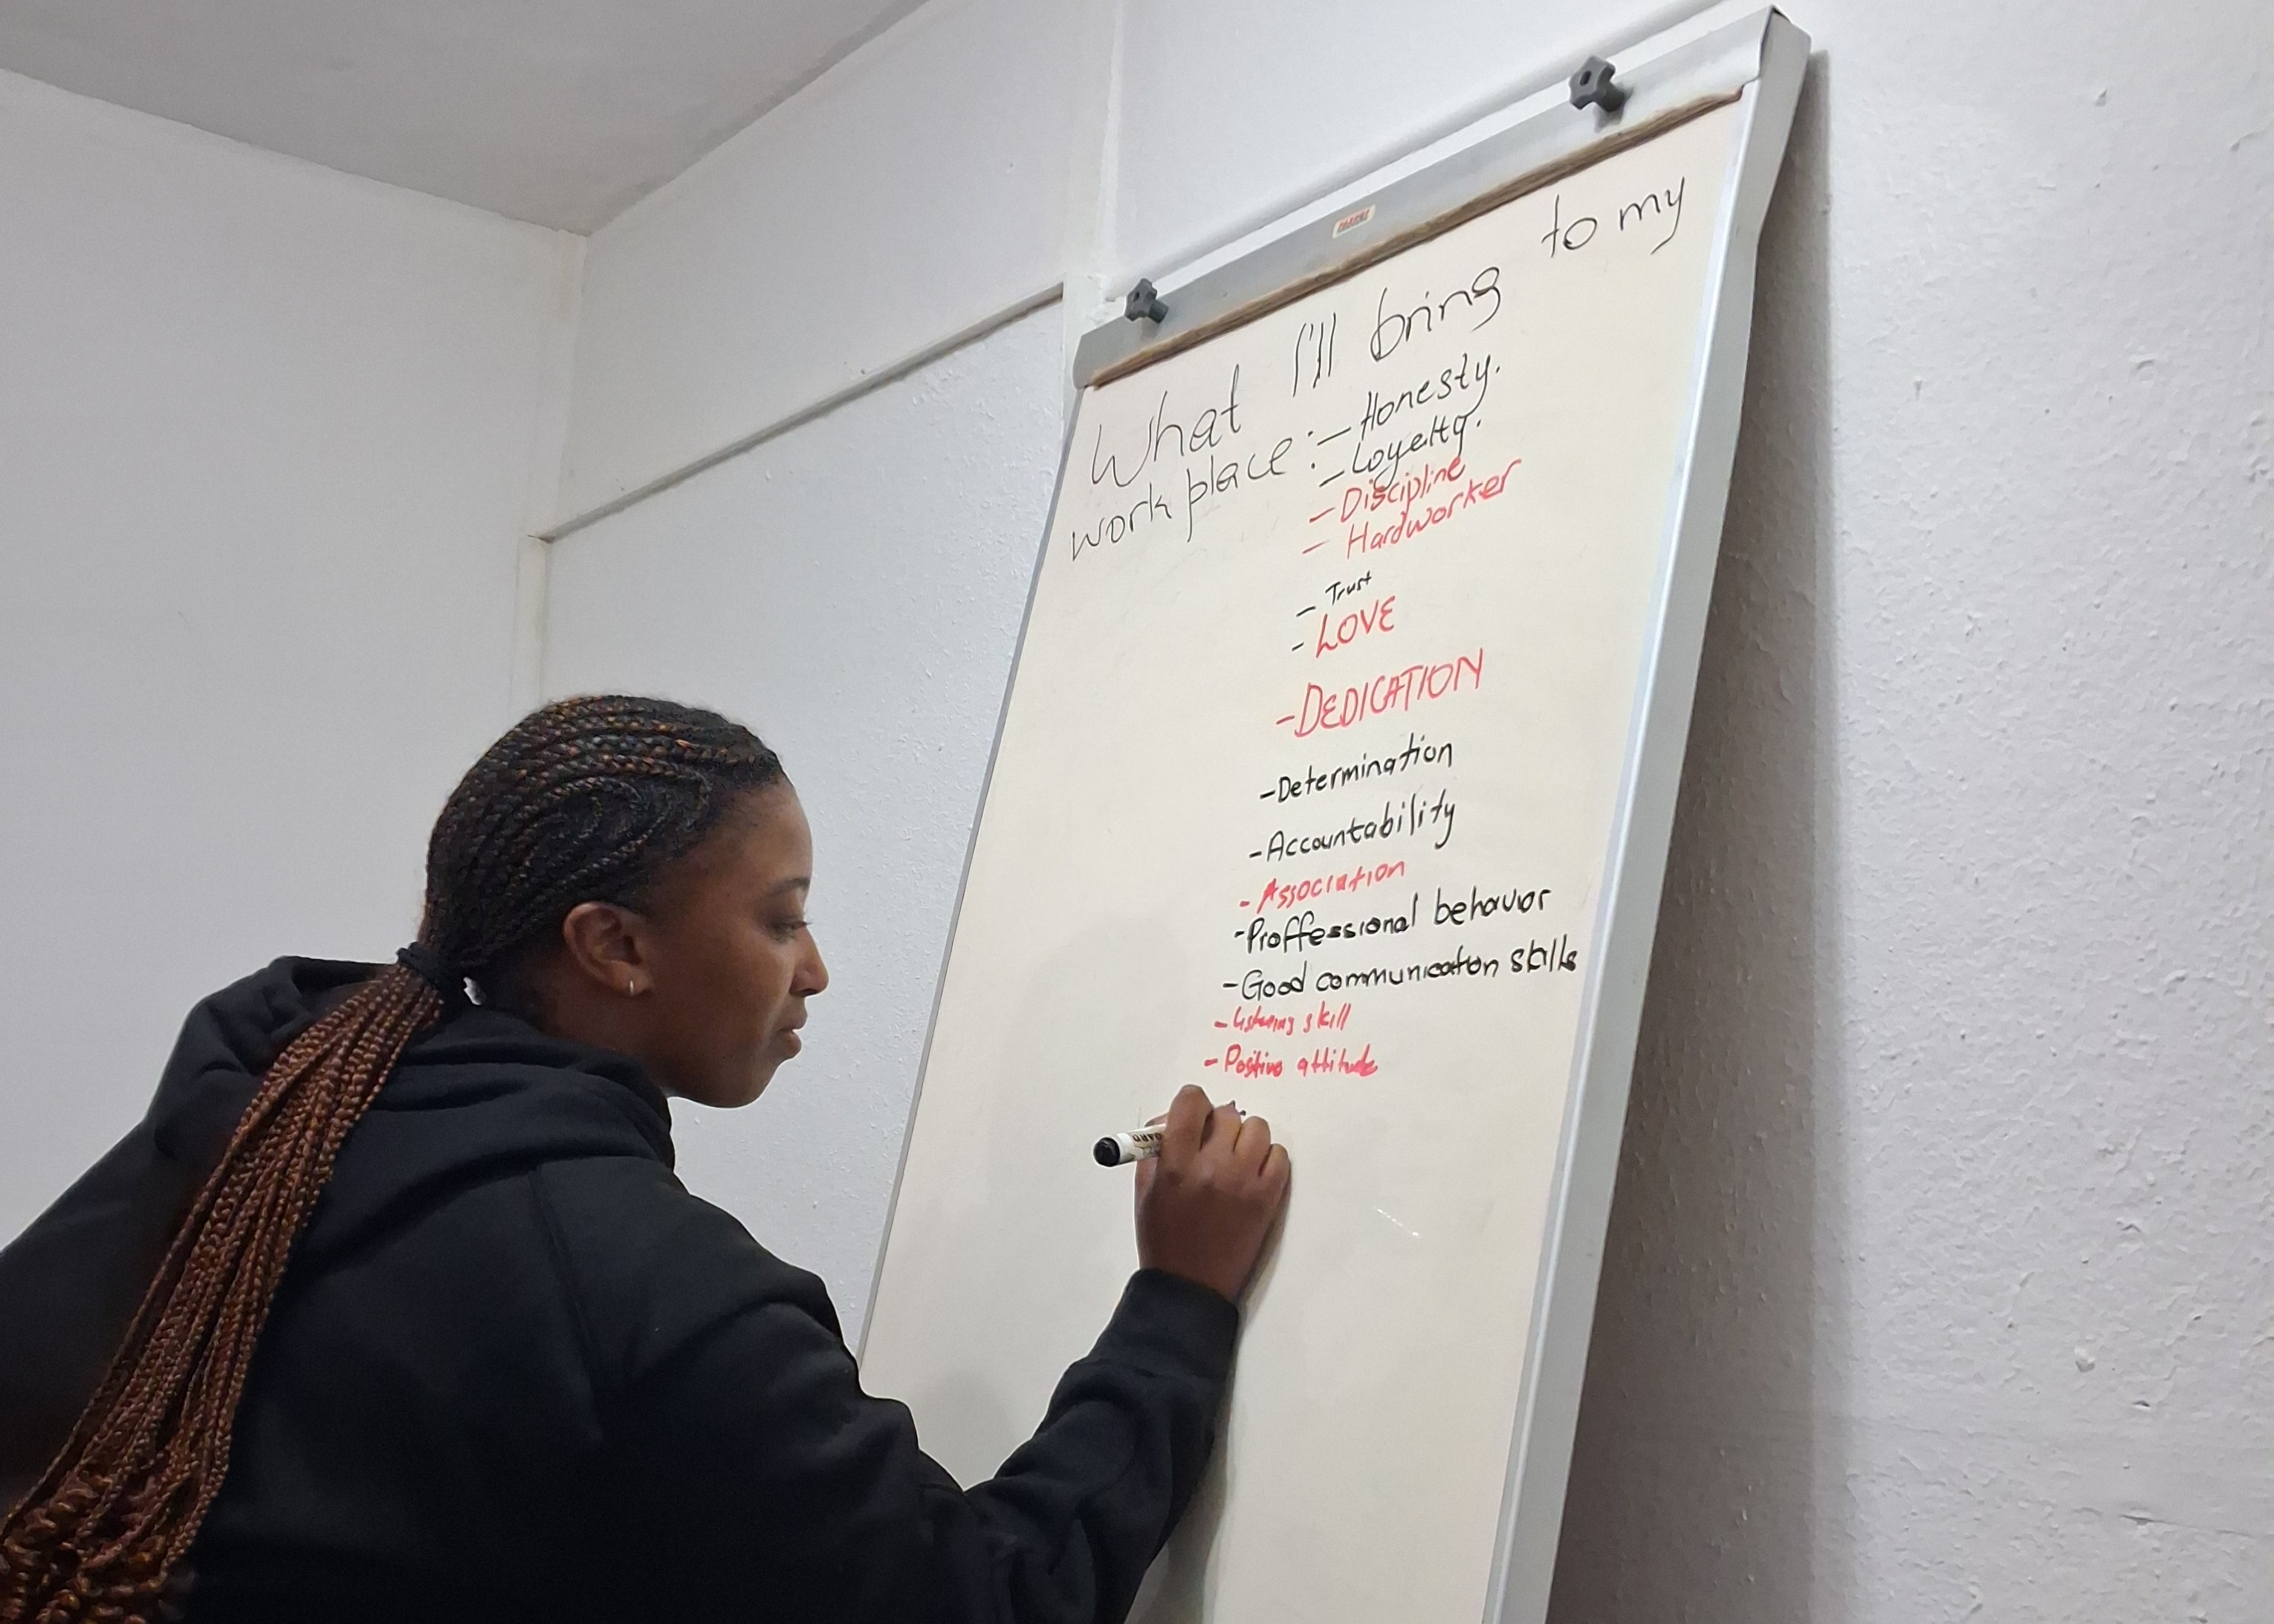 What I'll bring to my
work place : - Honesty.
- Loyelty.
- Discipline
- Hardworker
- Trust
- LOVE
- DEDICATION
- Determination
- Accountability
- Association
- Proffessional behavior
- Good communication skills
- Listening skill
- Positive attitude